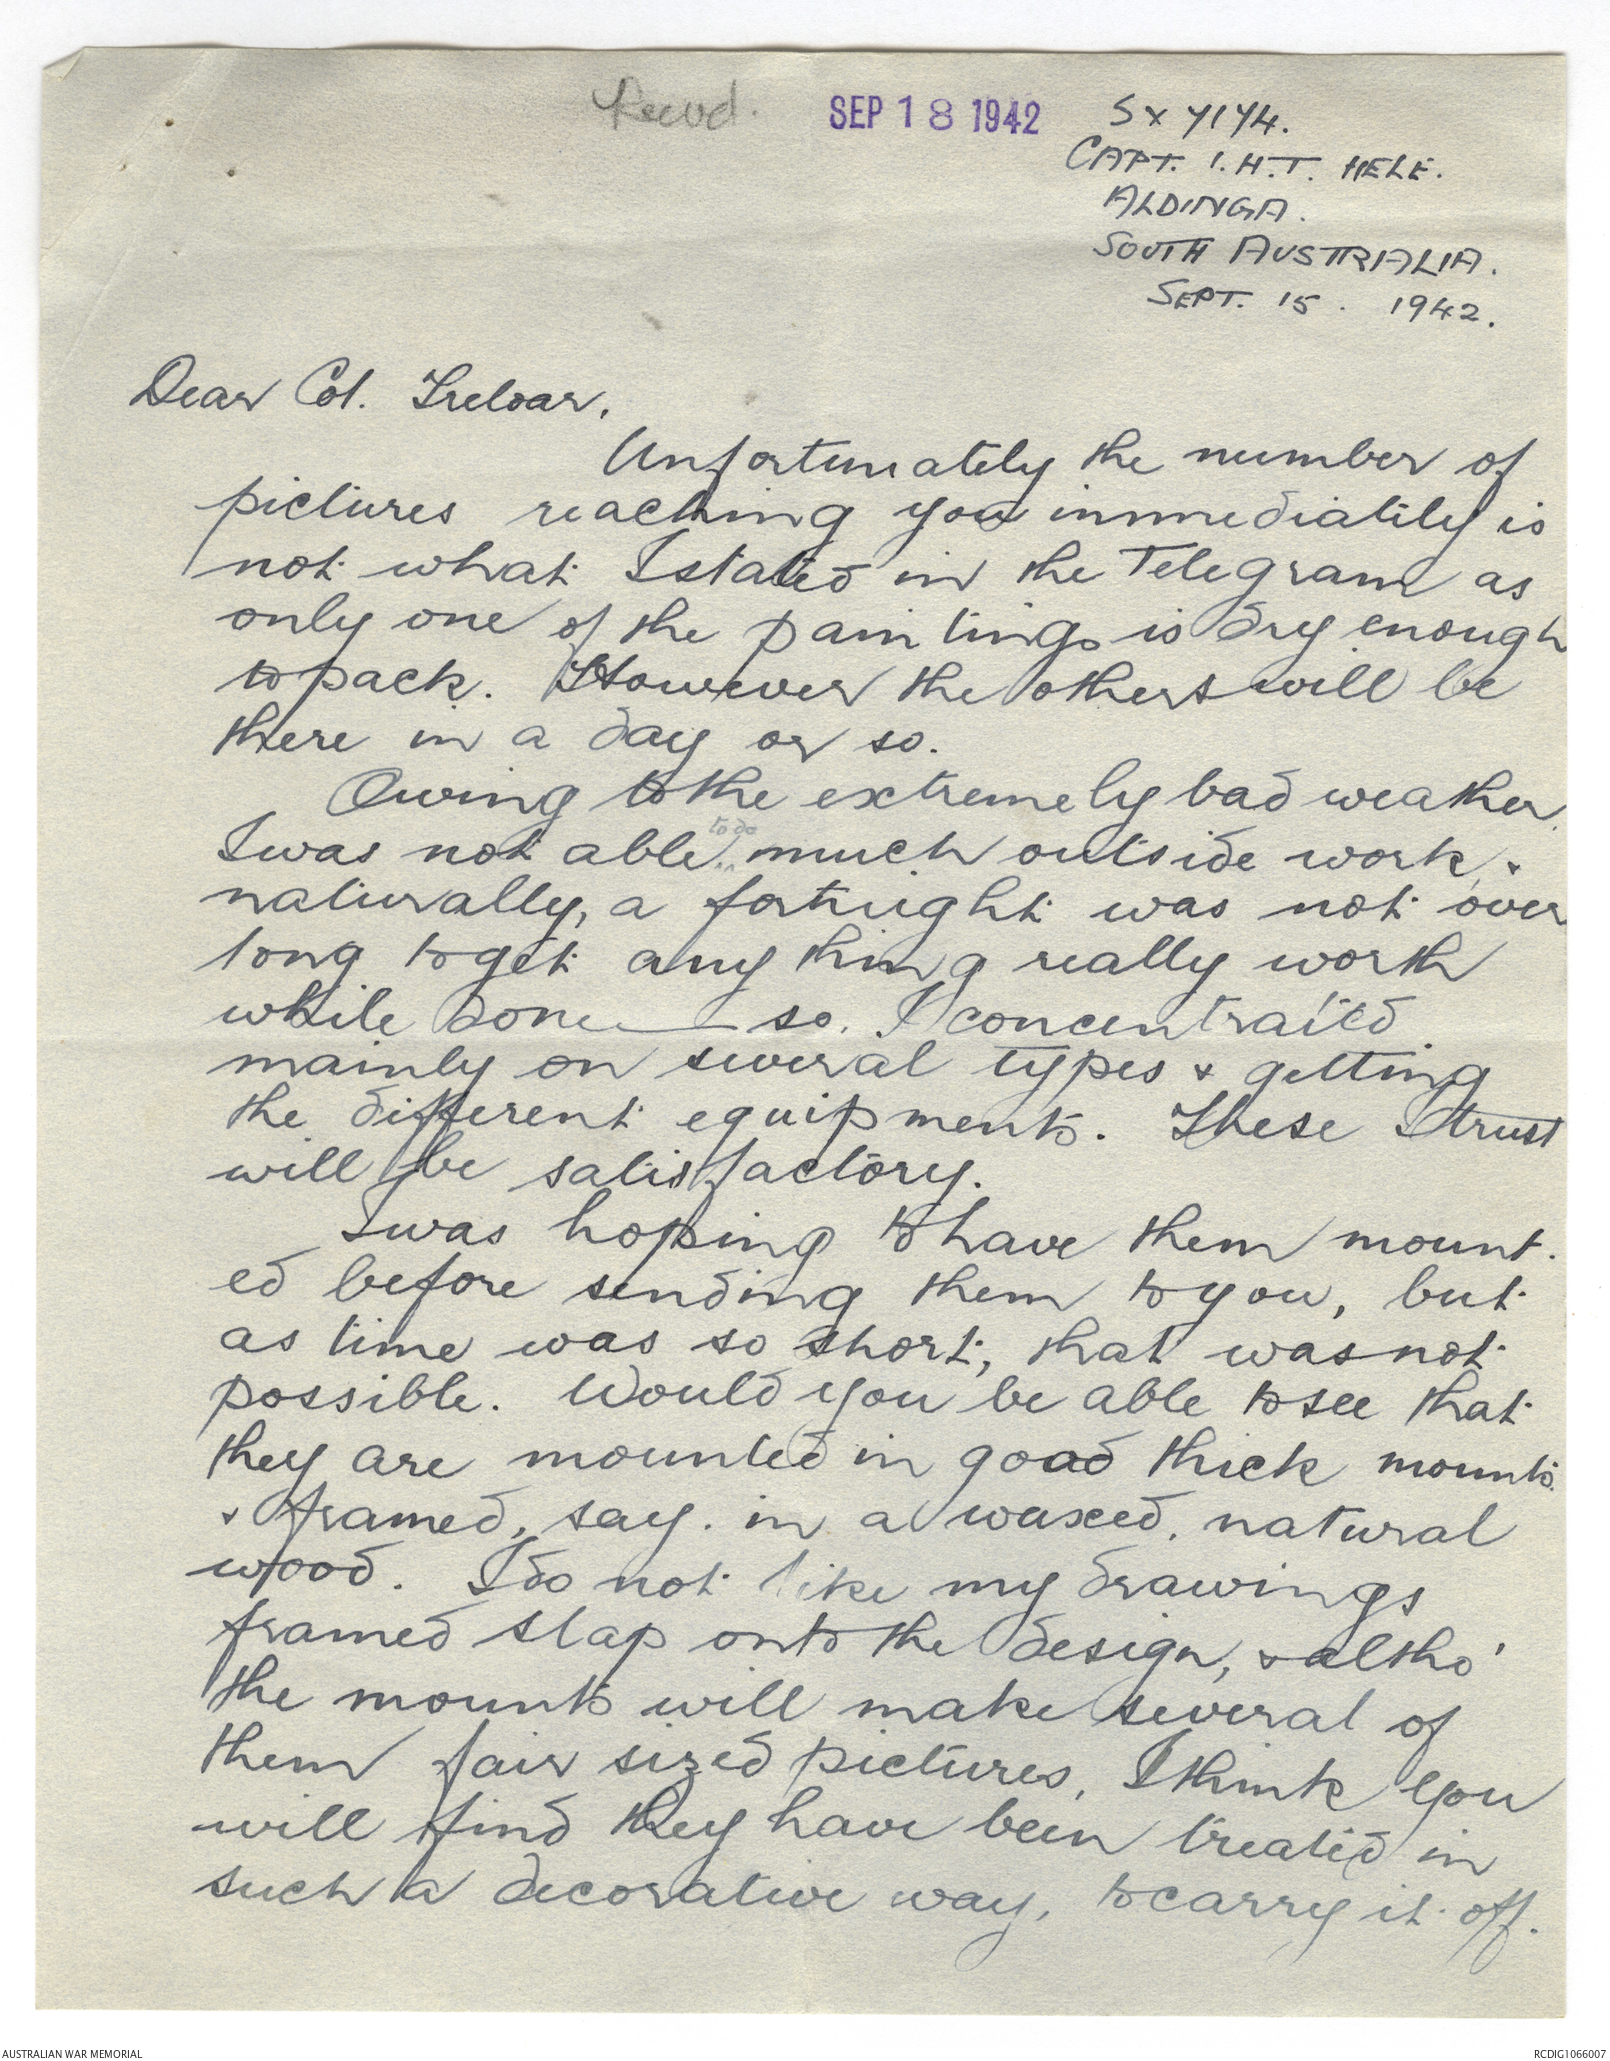 Recvd.
SEP 18 1942
SX 7174.
CAPT. I.H.T. HELE.
ALDINGA.
SOUTH AUSTRALIA.
SEPT. 15. 1942.
Dear Col. Treloar,
Unfortunately the number of
pictures reaching you immediately is
not what I stated in the Telegram as
only one of the paintings is dry enough
to pack. However the others will be
there in a day or so.
Owing to the extremely bad weather,
I was not able to do much outside work, &
naturally, a fortnight was not over
long to get any thing really worth
while done — so. I concentrated
mainly on several types & getting
the different equipments. These I trust
will be satisfactory.
I was hoping to have them mount.
ed before sending them to you, but
as time was so short, that was not
possible. Would you be able to see that
they are mounted in good thick mounts
& framed, say. in a waxed, natural
wood. I do not like my drawings
framed slap onto the design, & altho'
the mounts will make several of
them fair sized pictures, I think you
will find they have been treated in
such a decorative way, to carry it off.
AUSTRALIAN WAR MEMORIAL
RCDIG1066007